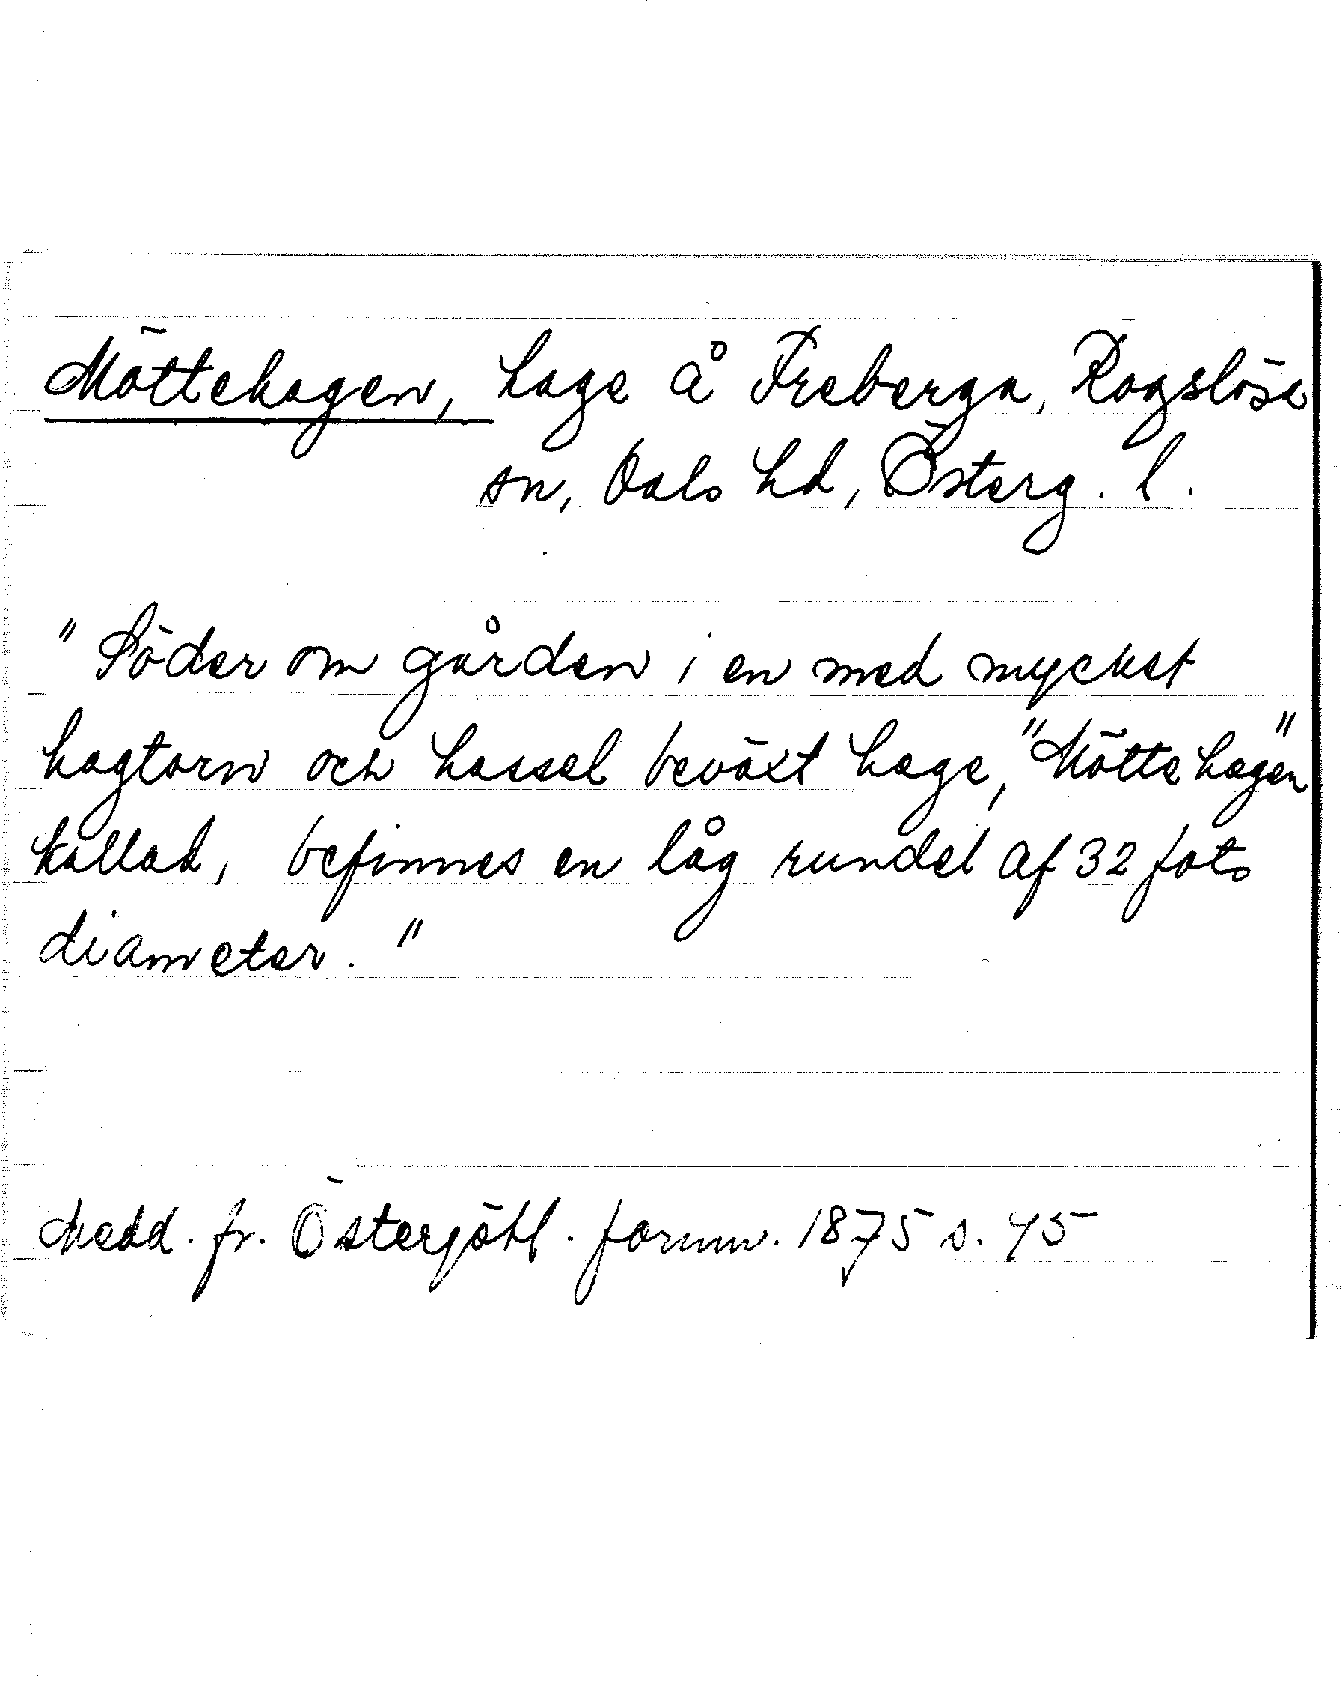 Möttehagen, hage å Freberga, Rogslösa
sn, Dals hd, Österg. l.
"Söder om gården i en med mycket
hagtorn och hassel bevöxt hage, "Möttehagen"
kallad, befinnes en låg rundel af 32 fots
diameter."
Medd. fr. Östergötl. fornm. 1875 s. 45